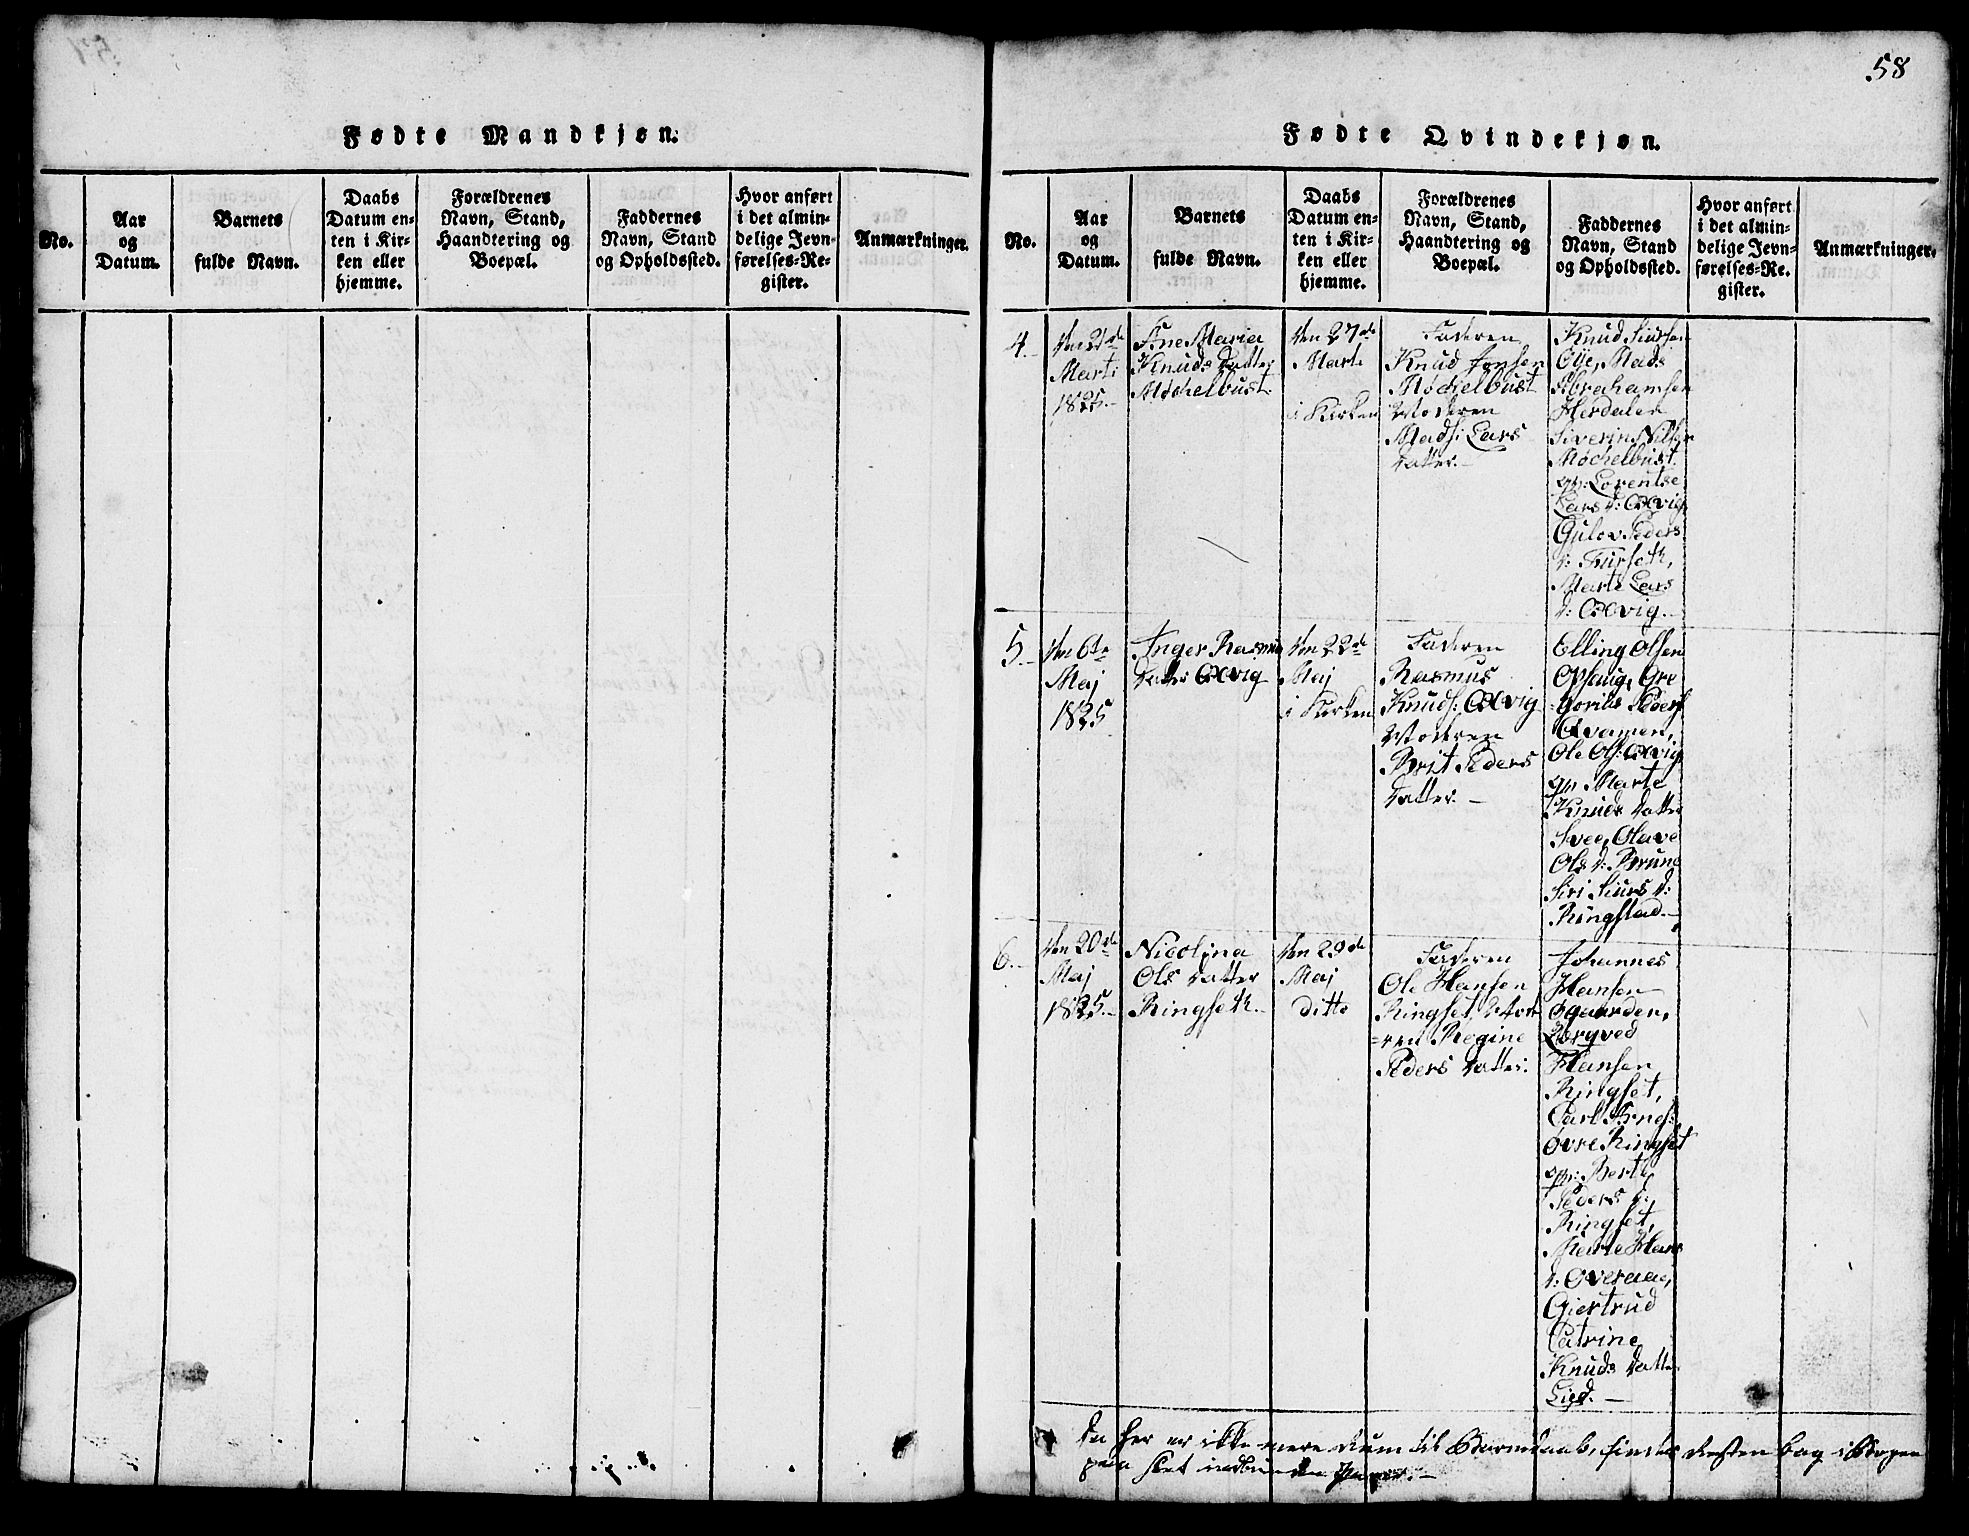 58
Fødte Mandkjøn.
No.
Aar
og
Datum.
Barnets
fulde Navn.
Daabs
Datum en-
ten i Kir-
ken eller
hjemme.
Forældrenes
Navn, Stand,
Haandtering og
Boepæl.
Faddernes
Navn, Stand
og Opholdssted.
Hvor anført
i det almin-
delige Jevn-
førelses-Re-
gister.
Anmærkninger.
Fødte Qvindekjøn.
No.
Aar
og
Datum.
Barnets
fulde Navn.
Daabs
Datum en-
ten i Kir-
ken eller
hjemme.
Forældrenes
Navn, Stand,
Haandtering og
Boepæl.
Faddernes
Navn, Stand
og Opholdssted.
Hvor anført
i det almin-
delige Jevn-
førelses-Re-
gister.
Anmærkninger.
4
Marti
1825
Ane Maria
Knuds Datter
Møchelbust
den 27de
Marti
i Kirken
Faderen
Knud Jonsen
Møchelbust
Moderen
Mads: Lars
Datter.
Knud Siursen
Øije, Mads
Abrahamsen
Herdalen
Siverin Nilsen
Møchelbust
qv: Lorentse
Lars d: Oxvig,
Gulov Peders
d: Furseth,
Marte Lars
d: Oxvig.
5
den 6te
Maj
1825
Inger Rasmus
Datter Oxvig
den 22de
Maj
i Kirken
Faderen
Rasmus
Knuds: Oxvig
Moderen
Brit Peders
Datter.
Elling Olsen
Opsaug, Gre
-gorius Peders
Qvamen,
Ole Ols: Oxvig
qv Marte
Knuds Datter
Svee, Olave
Ols d: Brune
Siri Siurs d:
Ringstad
6
den 20de
Maj
1825
Nicolina
Ols Datter
Ringseth
den 29de
Maj
ditto
Faderen
Ole Hansen
Ringset, Mode
=ren Regine
Peders Datter.
Johannes
Hansen
Øgaarden,
Hansen
Ringset,
Carl Arnes:
Øvre Ringset
qv: Berte
Peders d:
Ringset,
Marte Hans
d: Overaae,
Giertrud
Catrine
Knuds Datter
Lied.
Da her er ikke mere Rum til Barnedaab, findes Resten bag i Bogen
paa slet indbunden Papir.